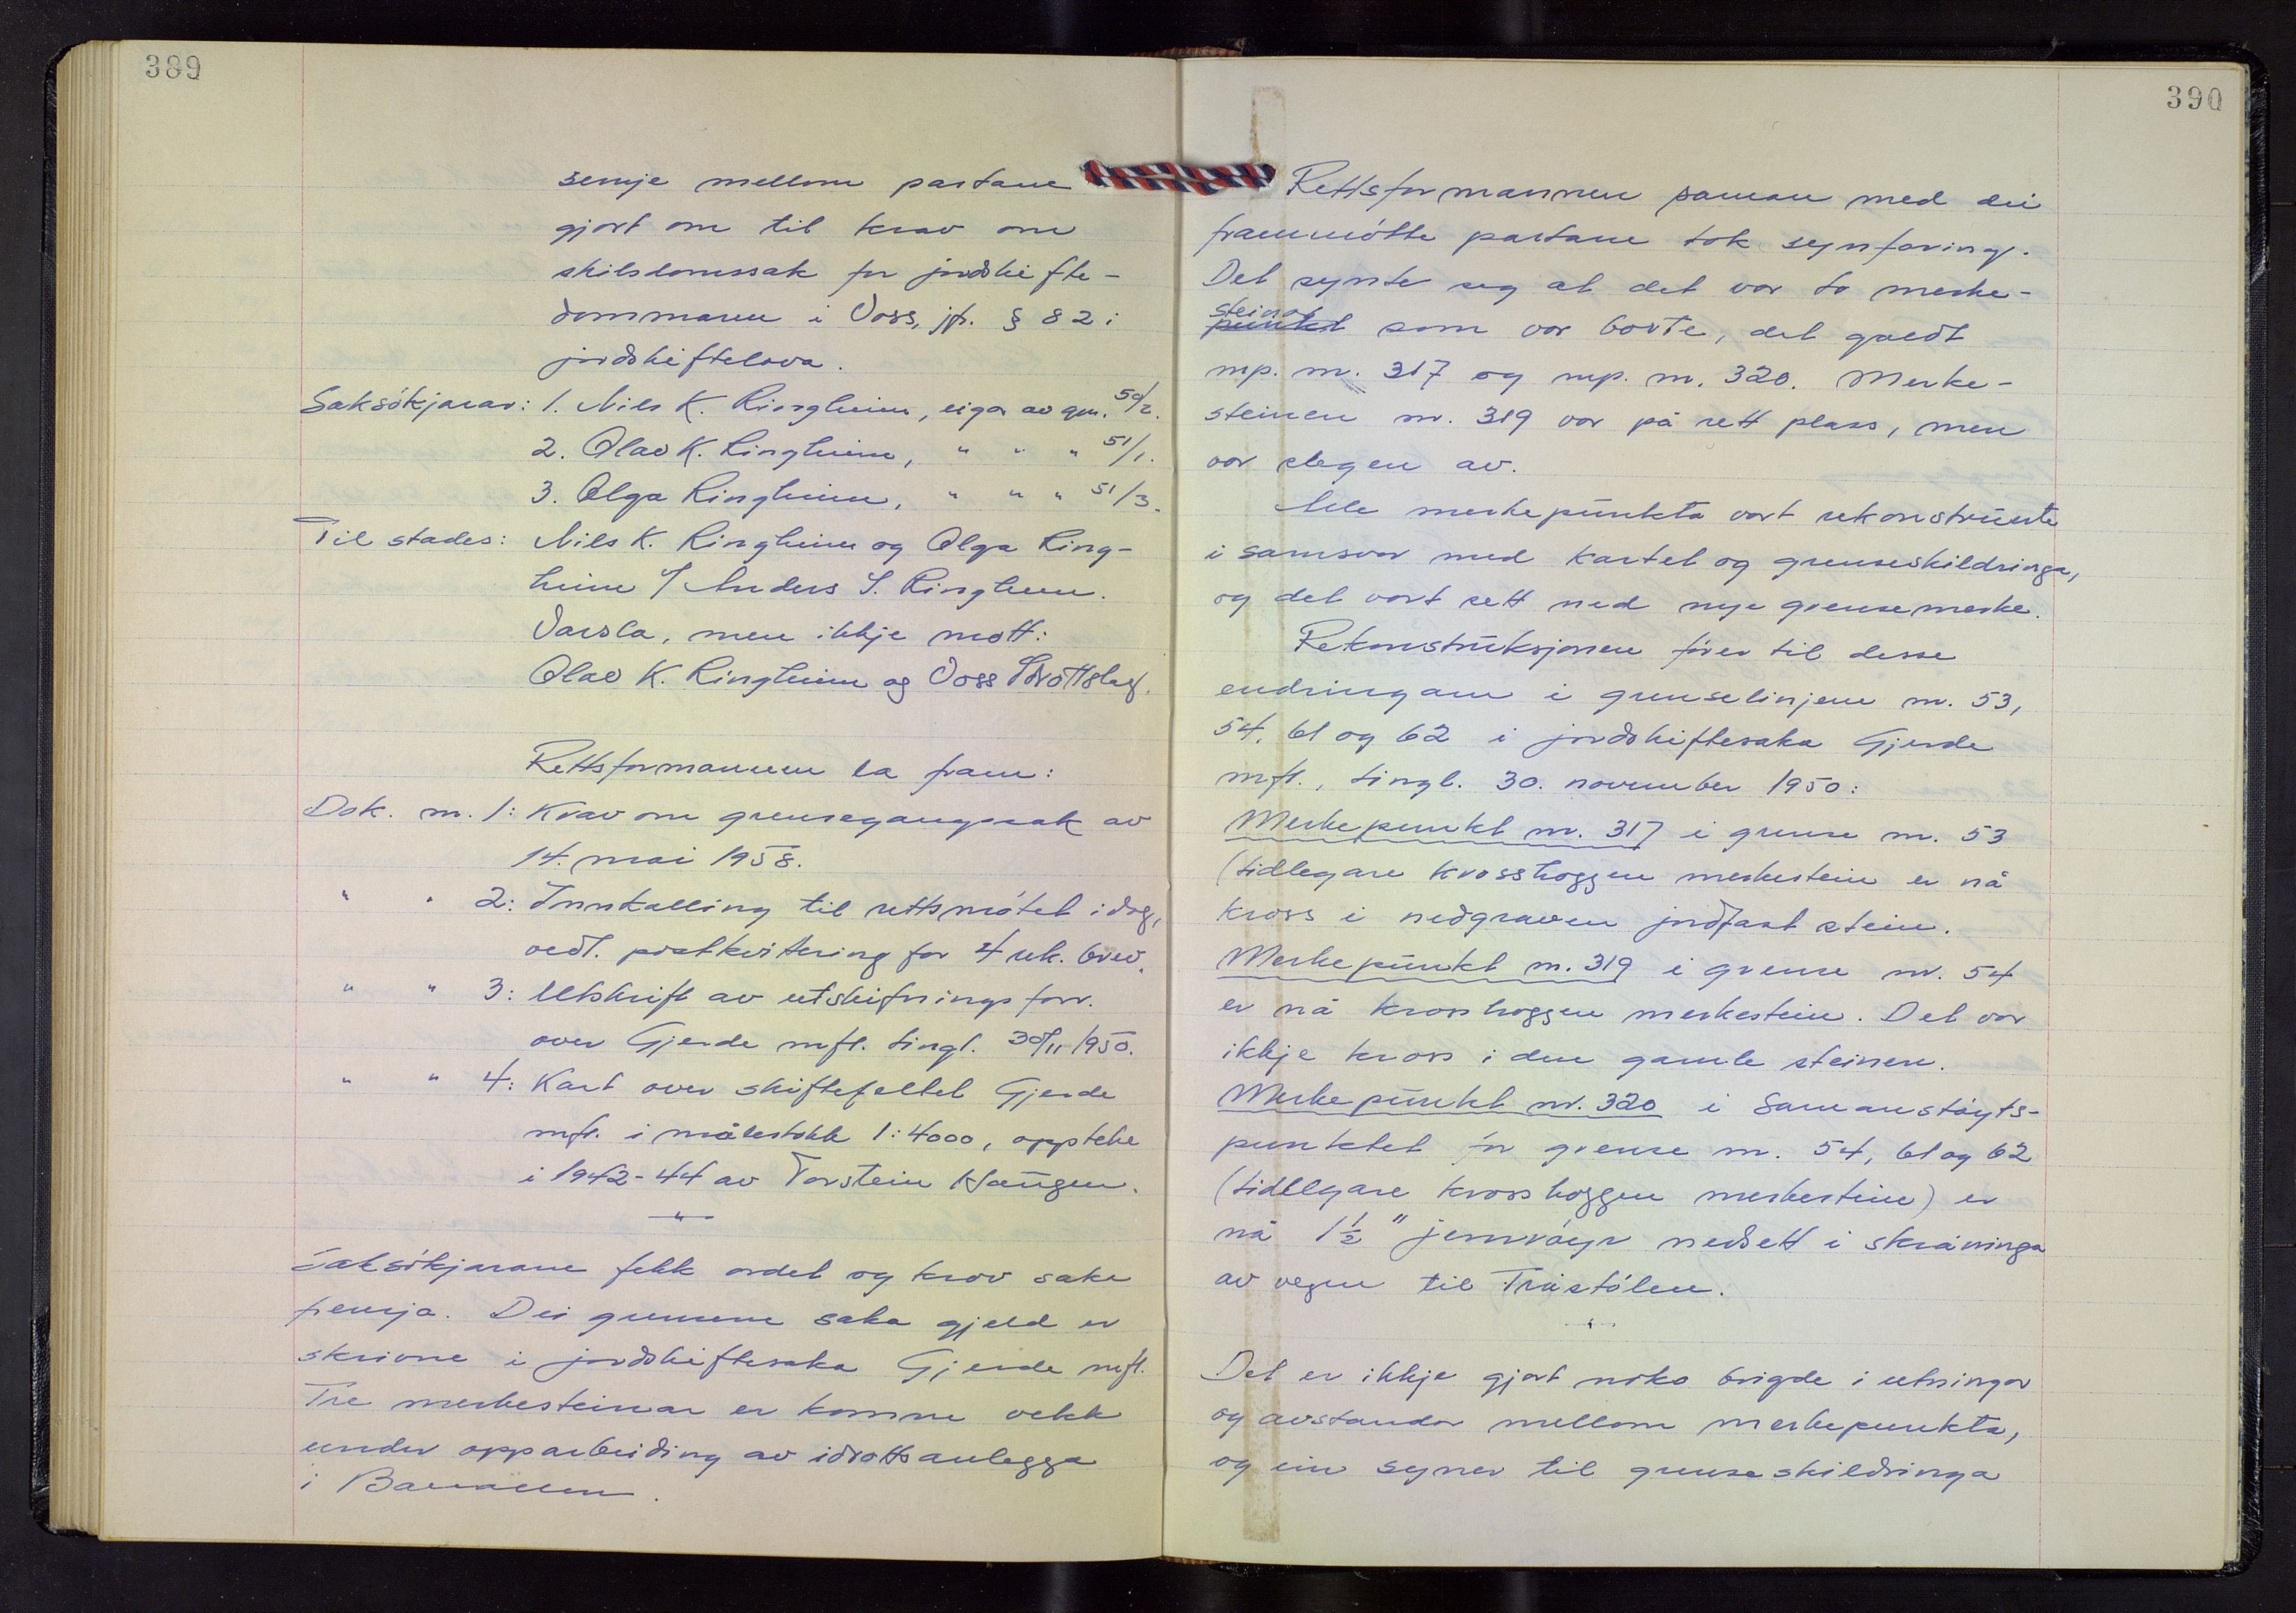 389
semje mellom partane
gjort om til krav om
skilsdomssak for jordskifte-
dommaren i Voss, jfr. § 82 i
jordskiftelova.
Saksökjarar: 1. Nils K. Ringheim, eigar av gnr. 50/2.
2. Olav K. Ringheim, " " " 51/1.
3. Olga Ringheim, " " " 51/3.
Til stades: Nils K. Ringheim og Olga Ring-
heim v/ Anders S. Ringheim.
Varsla, men ikkje mött:
Olav K. Ringheim og Voss Idrottslag.
Rettsformannen la fram:
Dok. nr. 1: Krav om grensegangssak av
14. mai 1958.
" " 2: Innkalling til rettsmötet idag,
vedl. postkvittering for 4 rek. brev.
" " 3: Utskrift av utskiftnings forr.
over Gjerde mfl. tingl. 30/11 1950.
" " 4: Kart over skiftefeltet Gjerde
mfl. i målestokk 1:4000, oppteke
i 1942-44 av Torstein Haugen.
"
Saksökjarane fekk ordet og krov saka
fremja. Dei grensene saka gjeld er
skrivne i jordskiftesaka Gjerde mfl.
Tre merkesteinar er komne vekk
under opparbeiding av idrottsanlegga
i Bavallen.
390
Rettsformannen saman med dei
frammötte partane tok synfaring.
Det synte seg at det var to merke-
steinar
punkt som var borte, det galdt
mp. nr. 317 og mp. nr. 320. Merke-
steinen nr. 319 var på rett plass, men
var slegen av.
Alle merkepunkta vart rekonstruerte
i samsvar med kartet og grenseskildringa,
og det vart sett ned nye grensemerke.
Rekonstruksjonen förer til desse
endringane i grenselinjene nr. 53,
54, 61 og 62 i jordskiftesaka Gjerde
mfl., tingl. 30. november 1950:
Merkepunkt nr. 317 i grense nr. 53
(tidlegare krosshoggen merkestein er nå
kross i nedgraven jordfast stein.
Merkepunkt nr. 319 i grense nr. 54
er nå krosshoggen merkestein. Det var
ikkje kross i den gamle steinen.
Merkepunkt nr. 320 i samanstöyts-
punktet for grense nr. 54, 61 og 62
(tidlegare krosshoggen merkestein) er
nå 1 1/2" jernröyr nedsett i skråninga
av vegen til Tråstölen.
"
Det er ikkje gjort noko brigde i retningar
og avstandar mellom merkepunkta,
og ein syner til grenseskildringa